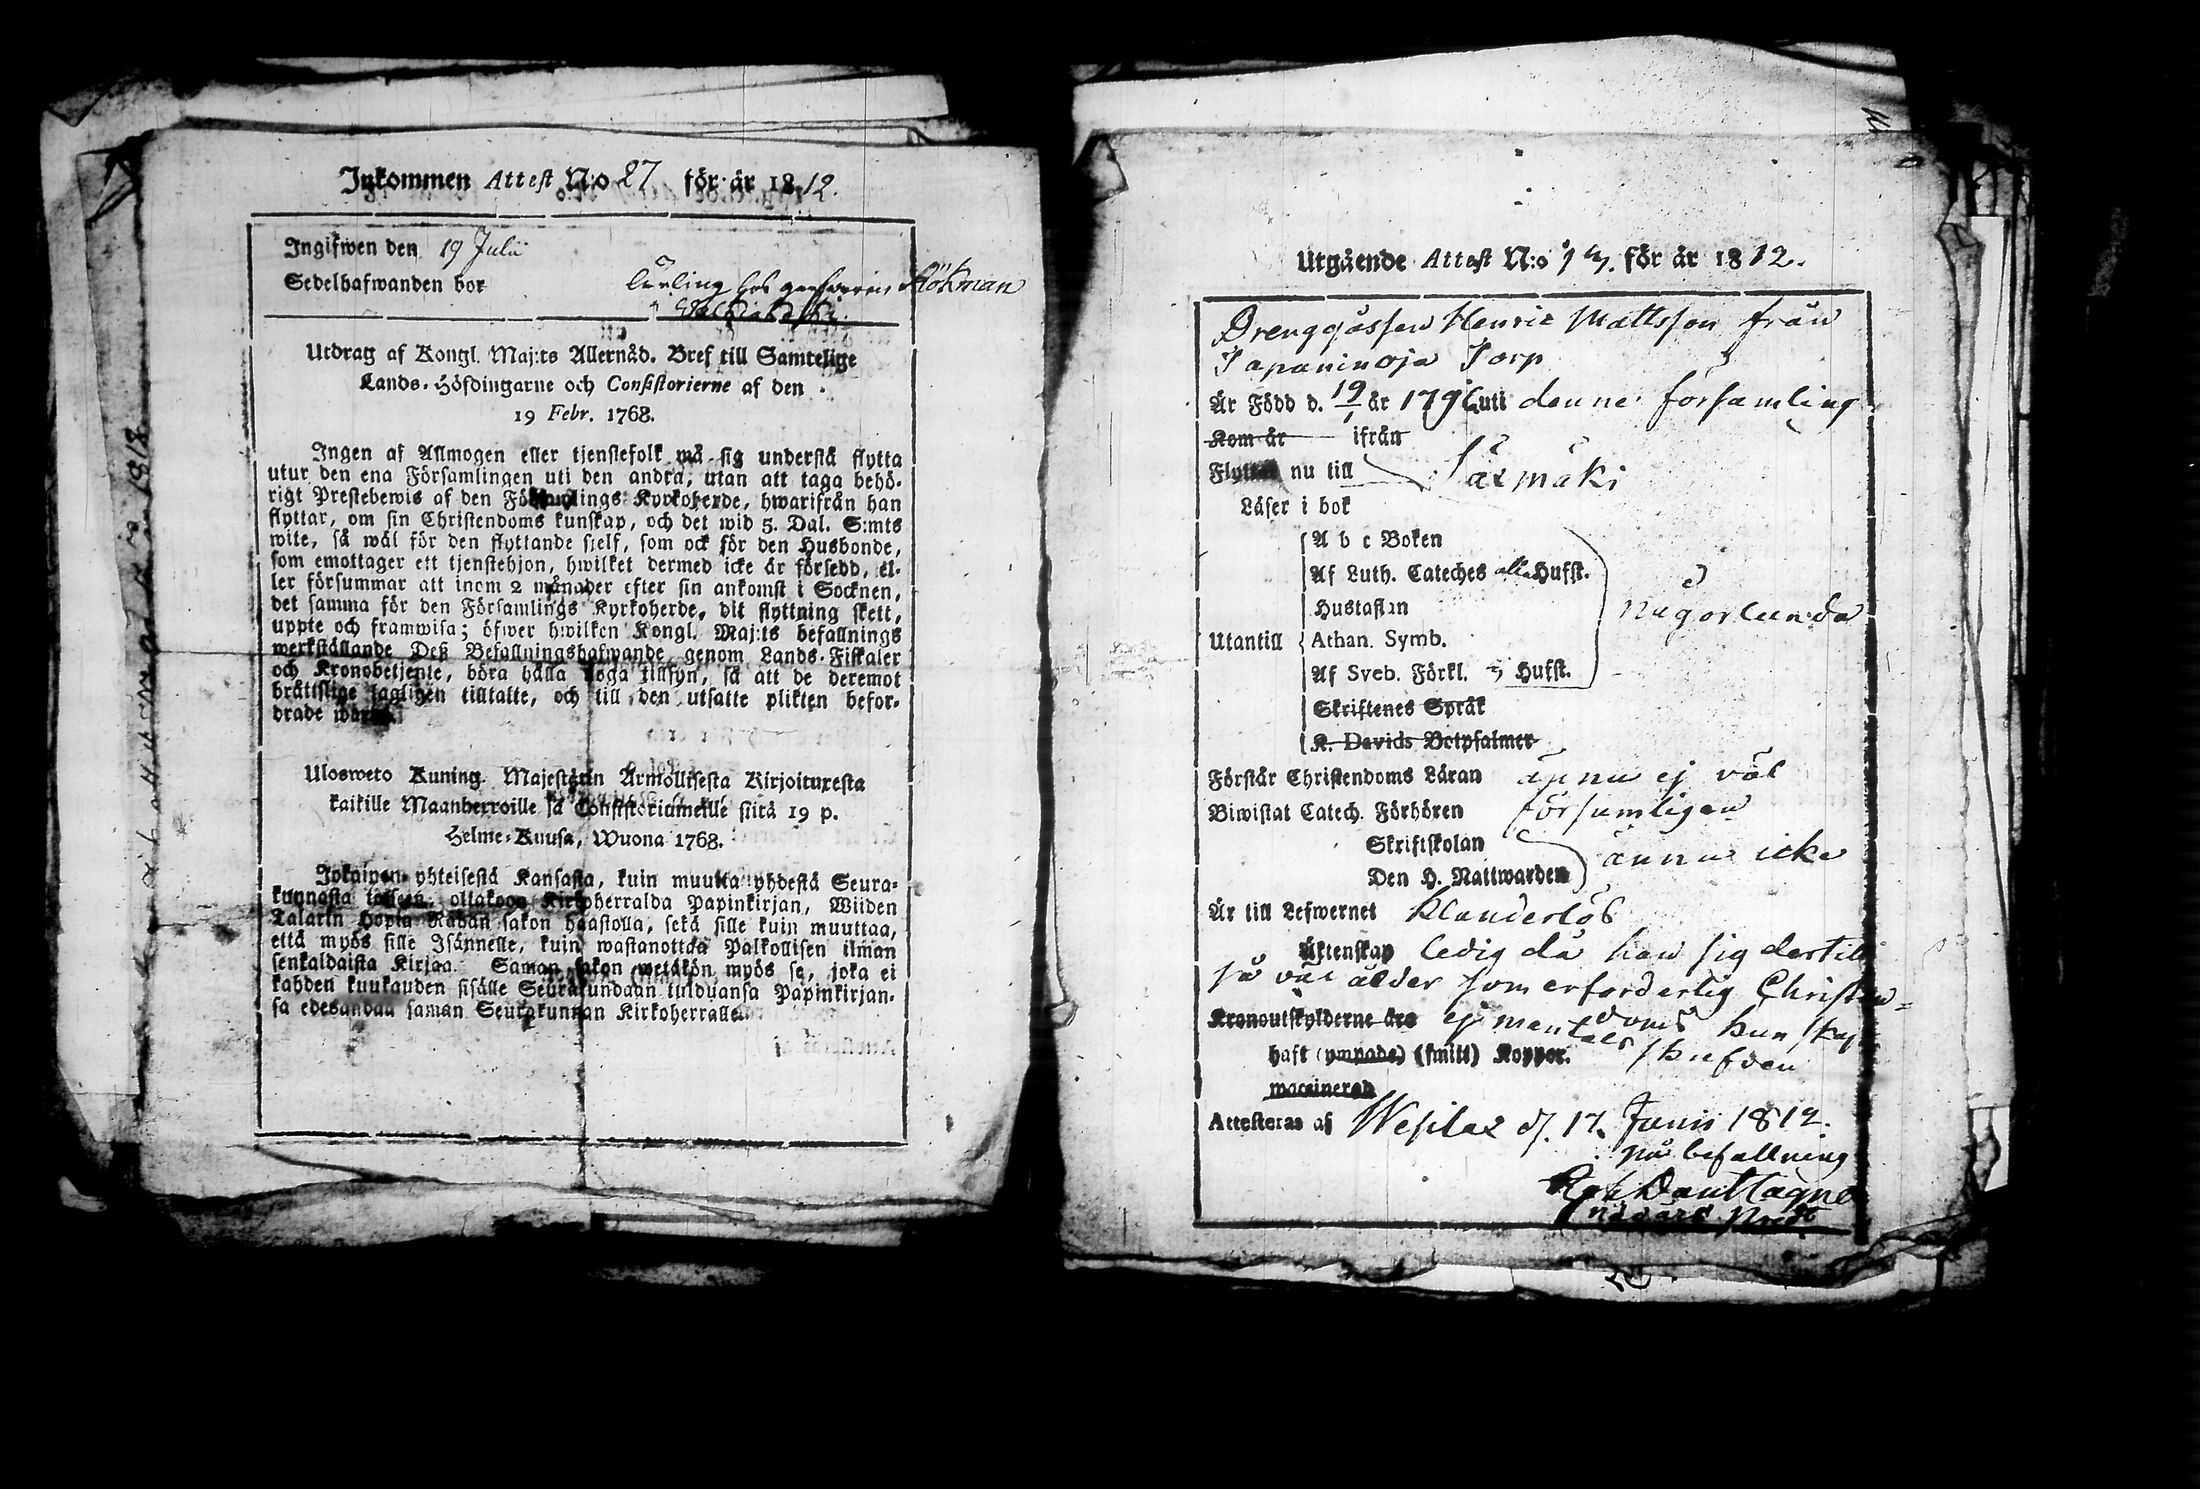 Inkommen Attest N:o 27 för år 1812.
Ingifwen den 19 Julii
Sedelhafwanden bor Lärling hos garfvaren Hökman
Utdrag af Kongl. Maj:ts Allernåd. Bref till Samtelige
Lands-Höfdingarne och Consistorierne af den
19 Febr. 1768.
Ingen af Allmogen eller tjenstefolk må sig understå flytta
utur den ena Församlingen uti den andra, utan att taga behö-
rigt Prestebewis af den Församlings Kyrkoherde, hwarifrån han
flyttar, om sin Christendoms kunskap, och det wid 5. Dal. S:mts
wite, så wäl för den flyttande sjelf, som ock för den Husbonde,
som emottager ett tjenstehjon, hwilket dermed icke är försedd, el-
ler försummar att inom 2 månader efter sin ankomst i Socknen,
det samma för den Församlings Kyrkoherde, dit flyttning skett,
uppte och framwisa; öfwer hwilken Kongl. Maj:ts befallnings
werkställande Deß Befallningshafwande genom Lands-Fiskaler
och Kronobetjente, böra hålla noga tillsyn, så att de deremot
bråttslige lagligen tilltalte, och till den utsatte plikten befor-
drade warda.
Ulosweto Kuning. Majestetin Armollisesta Kirjoituxesta
kaikille Maanherroille ja Consistoriumeille siitä 19 p.
Helme-Kuusa, Wuona 1768.
Jokainen yhteisestä Kansasta, kuin muutta yhdestä Seura-
kunnasta toiseen, ottakoon Kirkoherralda Papinkirjan, Wiiden
Talarin Hopia Rahan sakon haastolla, sekä sille kuin muuttaa,
että myös sille Isännelle, kuin wastanottaa Palkollisen ilman
senkaldaista Kirjaa. Saman sakon wetäkön myös se, joka ei
kahden kuukauden sisälle Seurakundaan tulduansa Papinkirjan-
sa edesandaa saman Seurakunnan Kirkoherralle.
Utgående Attest N:o för år 1812.
Drenggåssen Henric Mattsson från
Tapaninoja Torp
Är Född d. 19/1 år 1796 uti denne församling
Kom år ifrån
Flyttar nu till Säxmäki
Läser i bok
A b c Boken
Af Luth. Cateches alla Hufst.
Hustaflan
någorlunda
Utantill Athan. Symb.
Af Sveb. Förkl. 3 Hufst.
Skriftenes Språk
K. Davids Botpsalmer
Förstår Christendoms Läran ännu ej väl
Biwistat Catech. Förhören försumligen
Skriftskolan
ännu icke
Den H. Nattwarden
Är till Lefwernet klanderlös
Äktenskap ledig då han sig dertill
så väl ålder som erforderlig Christen-
doms kunskap
Kronoutskylderne äro ej mantals skrefven
haft (ympade) (smitt) Koppor.
waccinerad
Attesteras af Wesilax d. 17. Junii 1812.
på befallning